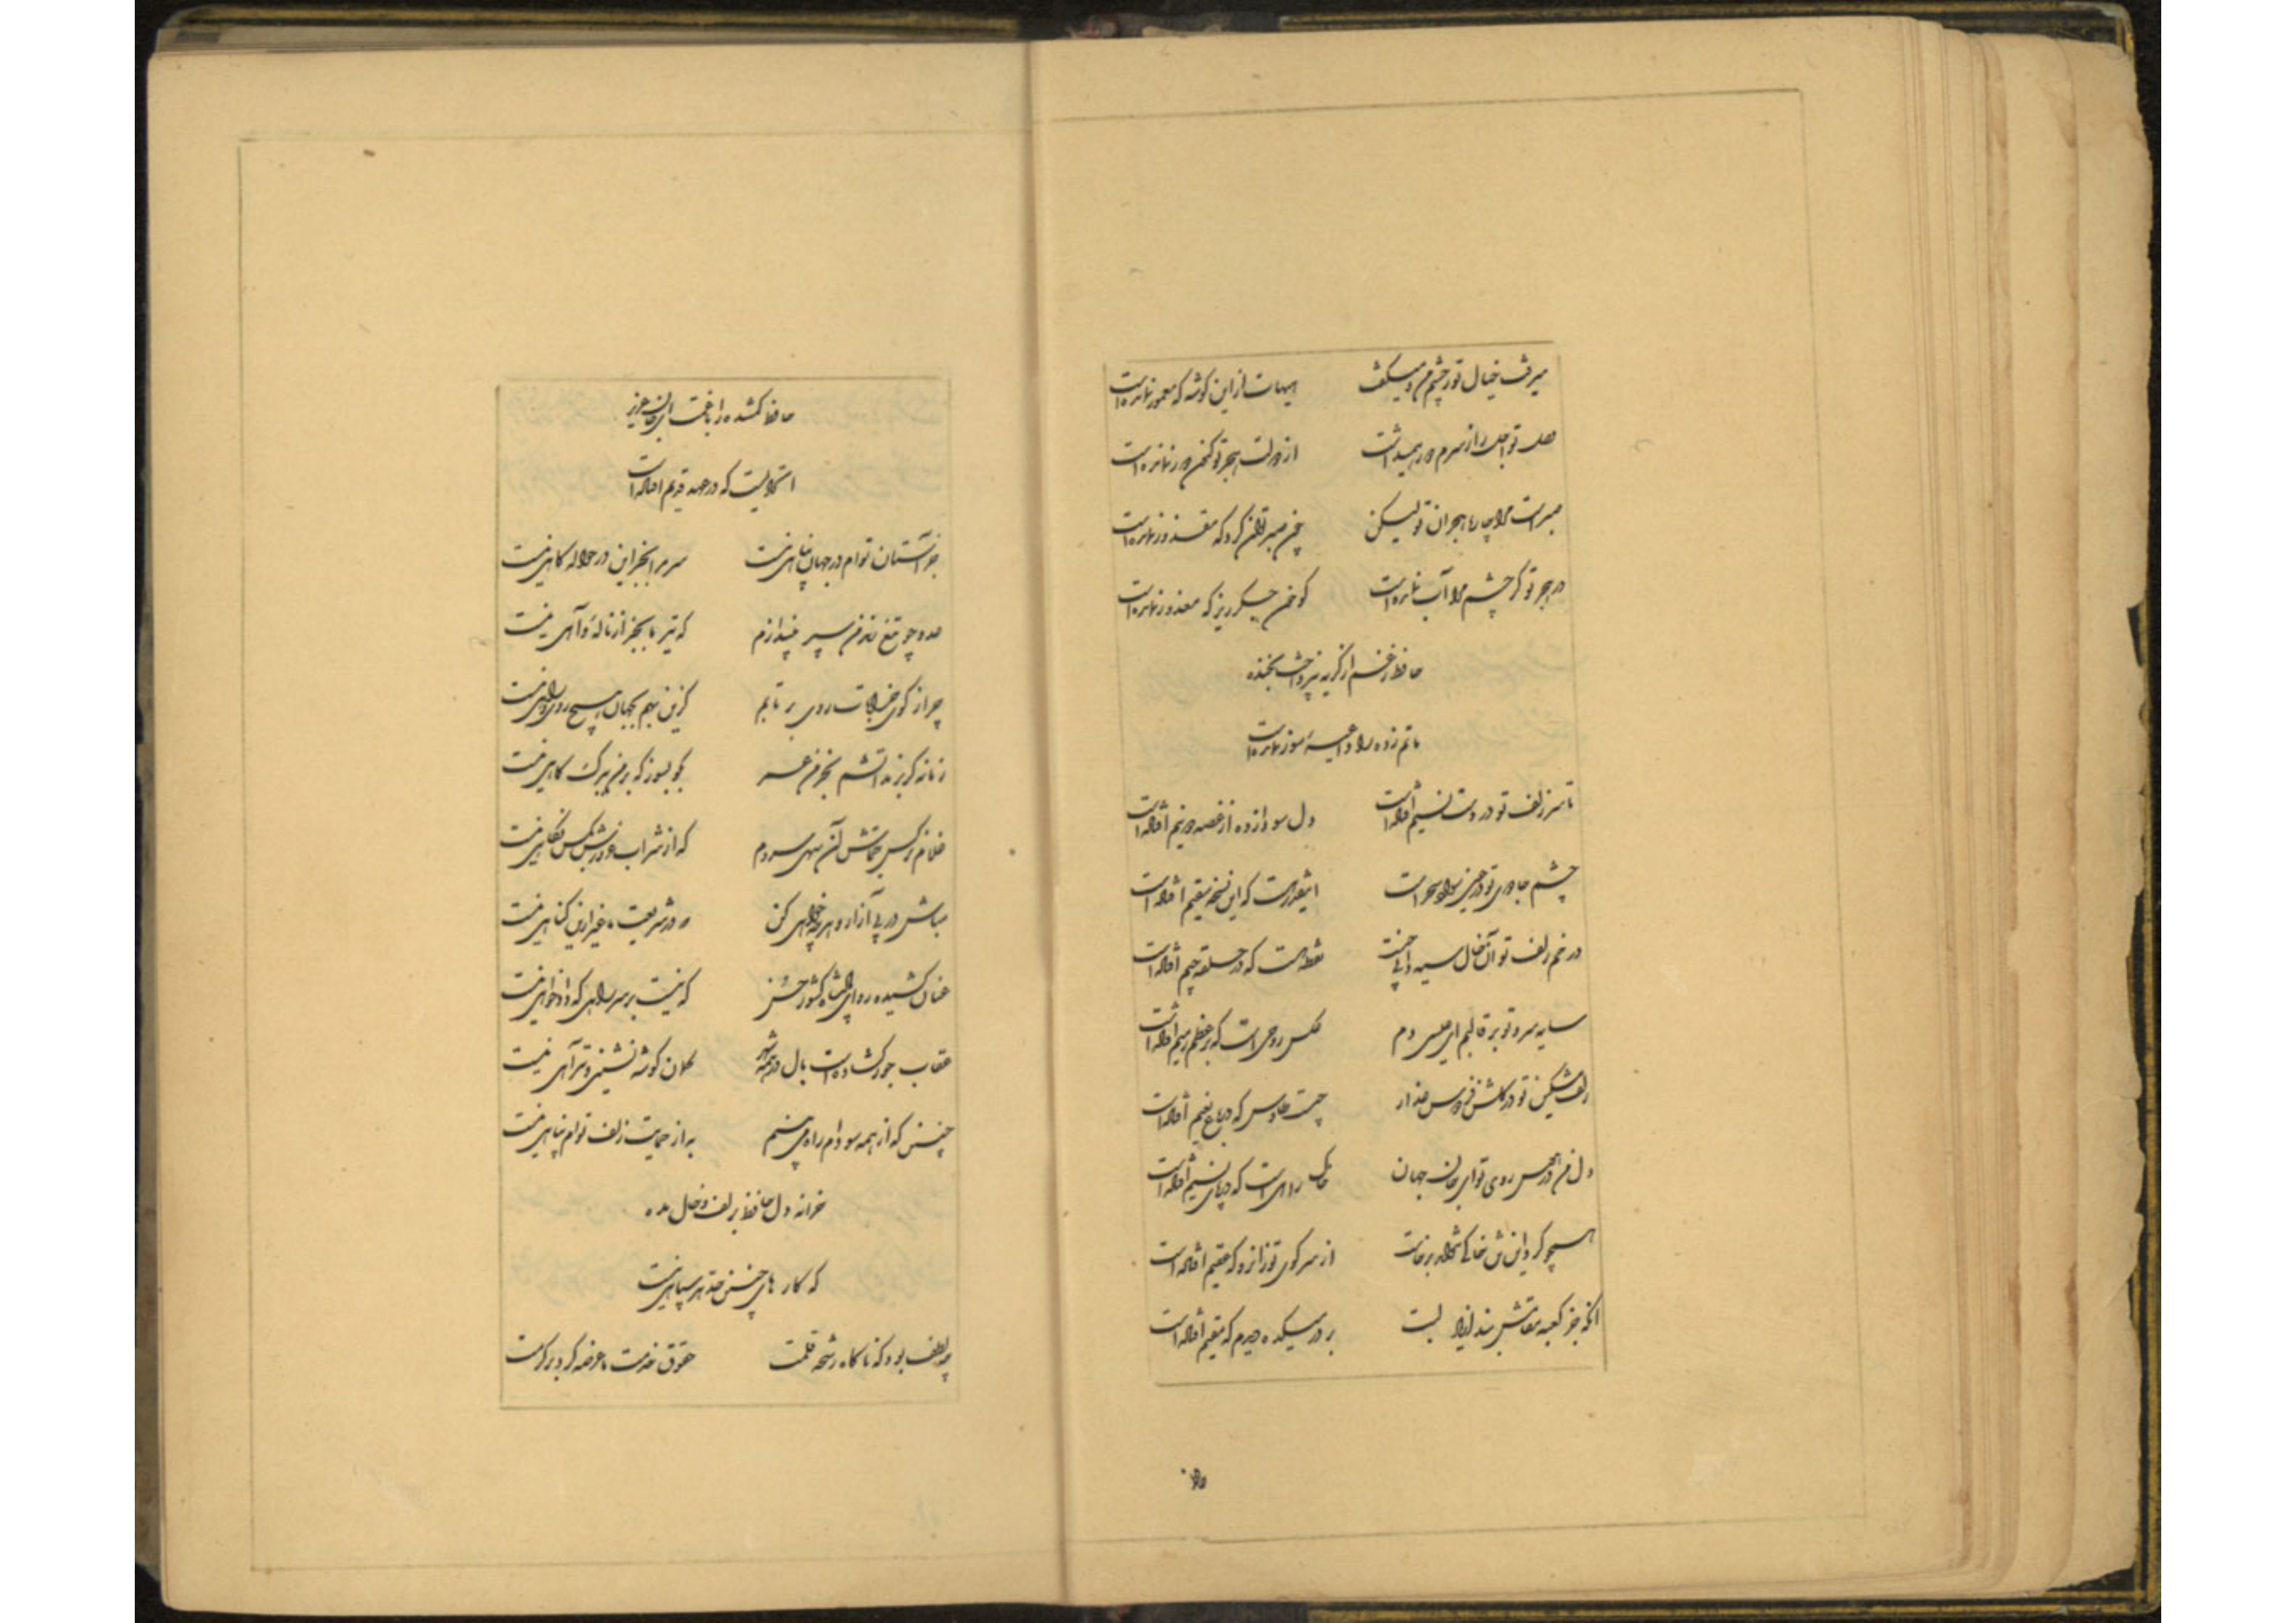 میرفت خیال تو ز چشم من و میگفت هیهات از این گوشه که معمور نمانده است
وصل تو اجل را ز سرم دور همیداشت از دولت هجر تو کنون دور نمانده است
صبر است مرا چاره هجران تو لیکن چون صبر توان کرد که مقدور نمانده است
در هجر تو گر چشم مرا آب نمانده است گو خون جگر ریز که معذور نمانده است
حافظ ز غم از گریه نپرداخت بخنده
ماتم زده را داعیهٔ سور نمانده است
تا سر زلف تو در دست نسیم افتاده است دل سودازده از غصه دو نیم افتاده است
چشم جادوی تو در عین سواد سحر است اینقدر هست که این نسخه سقیم افتاده است
در خم زلف تو آن خال سیه دانی چیست نقطه است که در حلقه جیم افتاده است
سایه سرو تو بر قالبم ای عیسی دم عکس روحی است که بر عظم رمیم افتاده است
زلف مشکین تو در گلشن فردوس عذار چیست طاوس که در باغ نعیم افتاده است
دل من در هوس روی تو ای جان جهان خاک راهی است که در پای نسیم افتاده است
همچو گرد این تن خاکی نتواند برخاست از سر کوی تو زانرو که عظیم افتاده است
آنکه جز کعبه مقامش نبد از یاد لبت بر در میکده دیدم که مقیم افتاده است
حافظ گمشده را با غمت ای جان عزیز
اتحادیست که در عهد قدیم افتاده است
جز آستان توام در جهان پناهی نیست سر مرا بجز این در حواله گاهی نیست
عدو چو تیغ زند من سپر بیندازم که تیر ما بجز از ناله و آهی نیست
چرا ز کوی خرابات روی برتابم کزین بهم بجهان هیچ روی و راهی نیست
زمانه گر بزند آتشم بخرمن عمر بگو بسوز که بر من ببرگ کاهی نیست
غلام نرگس جماش آن سهی سروم که از شراب غرورش بکس نگاهی نیست
مباش در پی آزار و هر چه خواهی کن که در شریعت ما غیر ازین گناهی نیست
عنان کشیده رو ای پادشاه کشور حسن که نیست بر سر راهی که دادخواهی نیست
عقاب جور گشاده است بال در همه شهر کمان گوشه نشینی و تیر آهی نیست
چنین که از همه سو دام راه می بینم به از حمایت زلف توام پناهی نیست
خزانه دل حافظ بزلف و خال مده
که کارهای چنین حد هر سیاهی نیست
چه لطف بود که ناگاه رشحه قلمت حقوق خدمت ما عرضه کرد بر کرمت